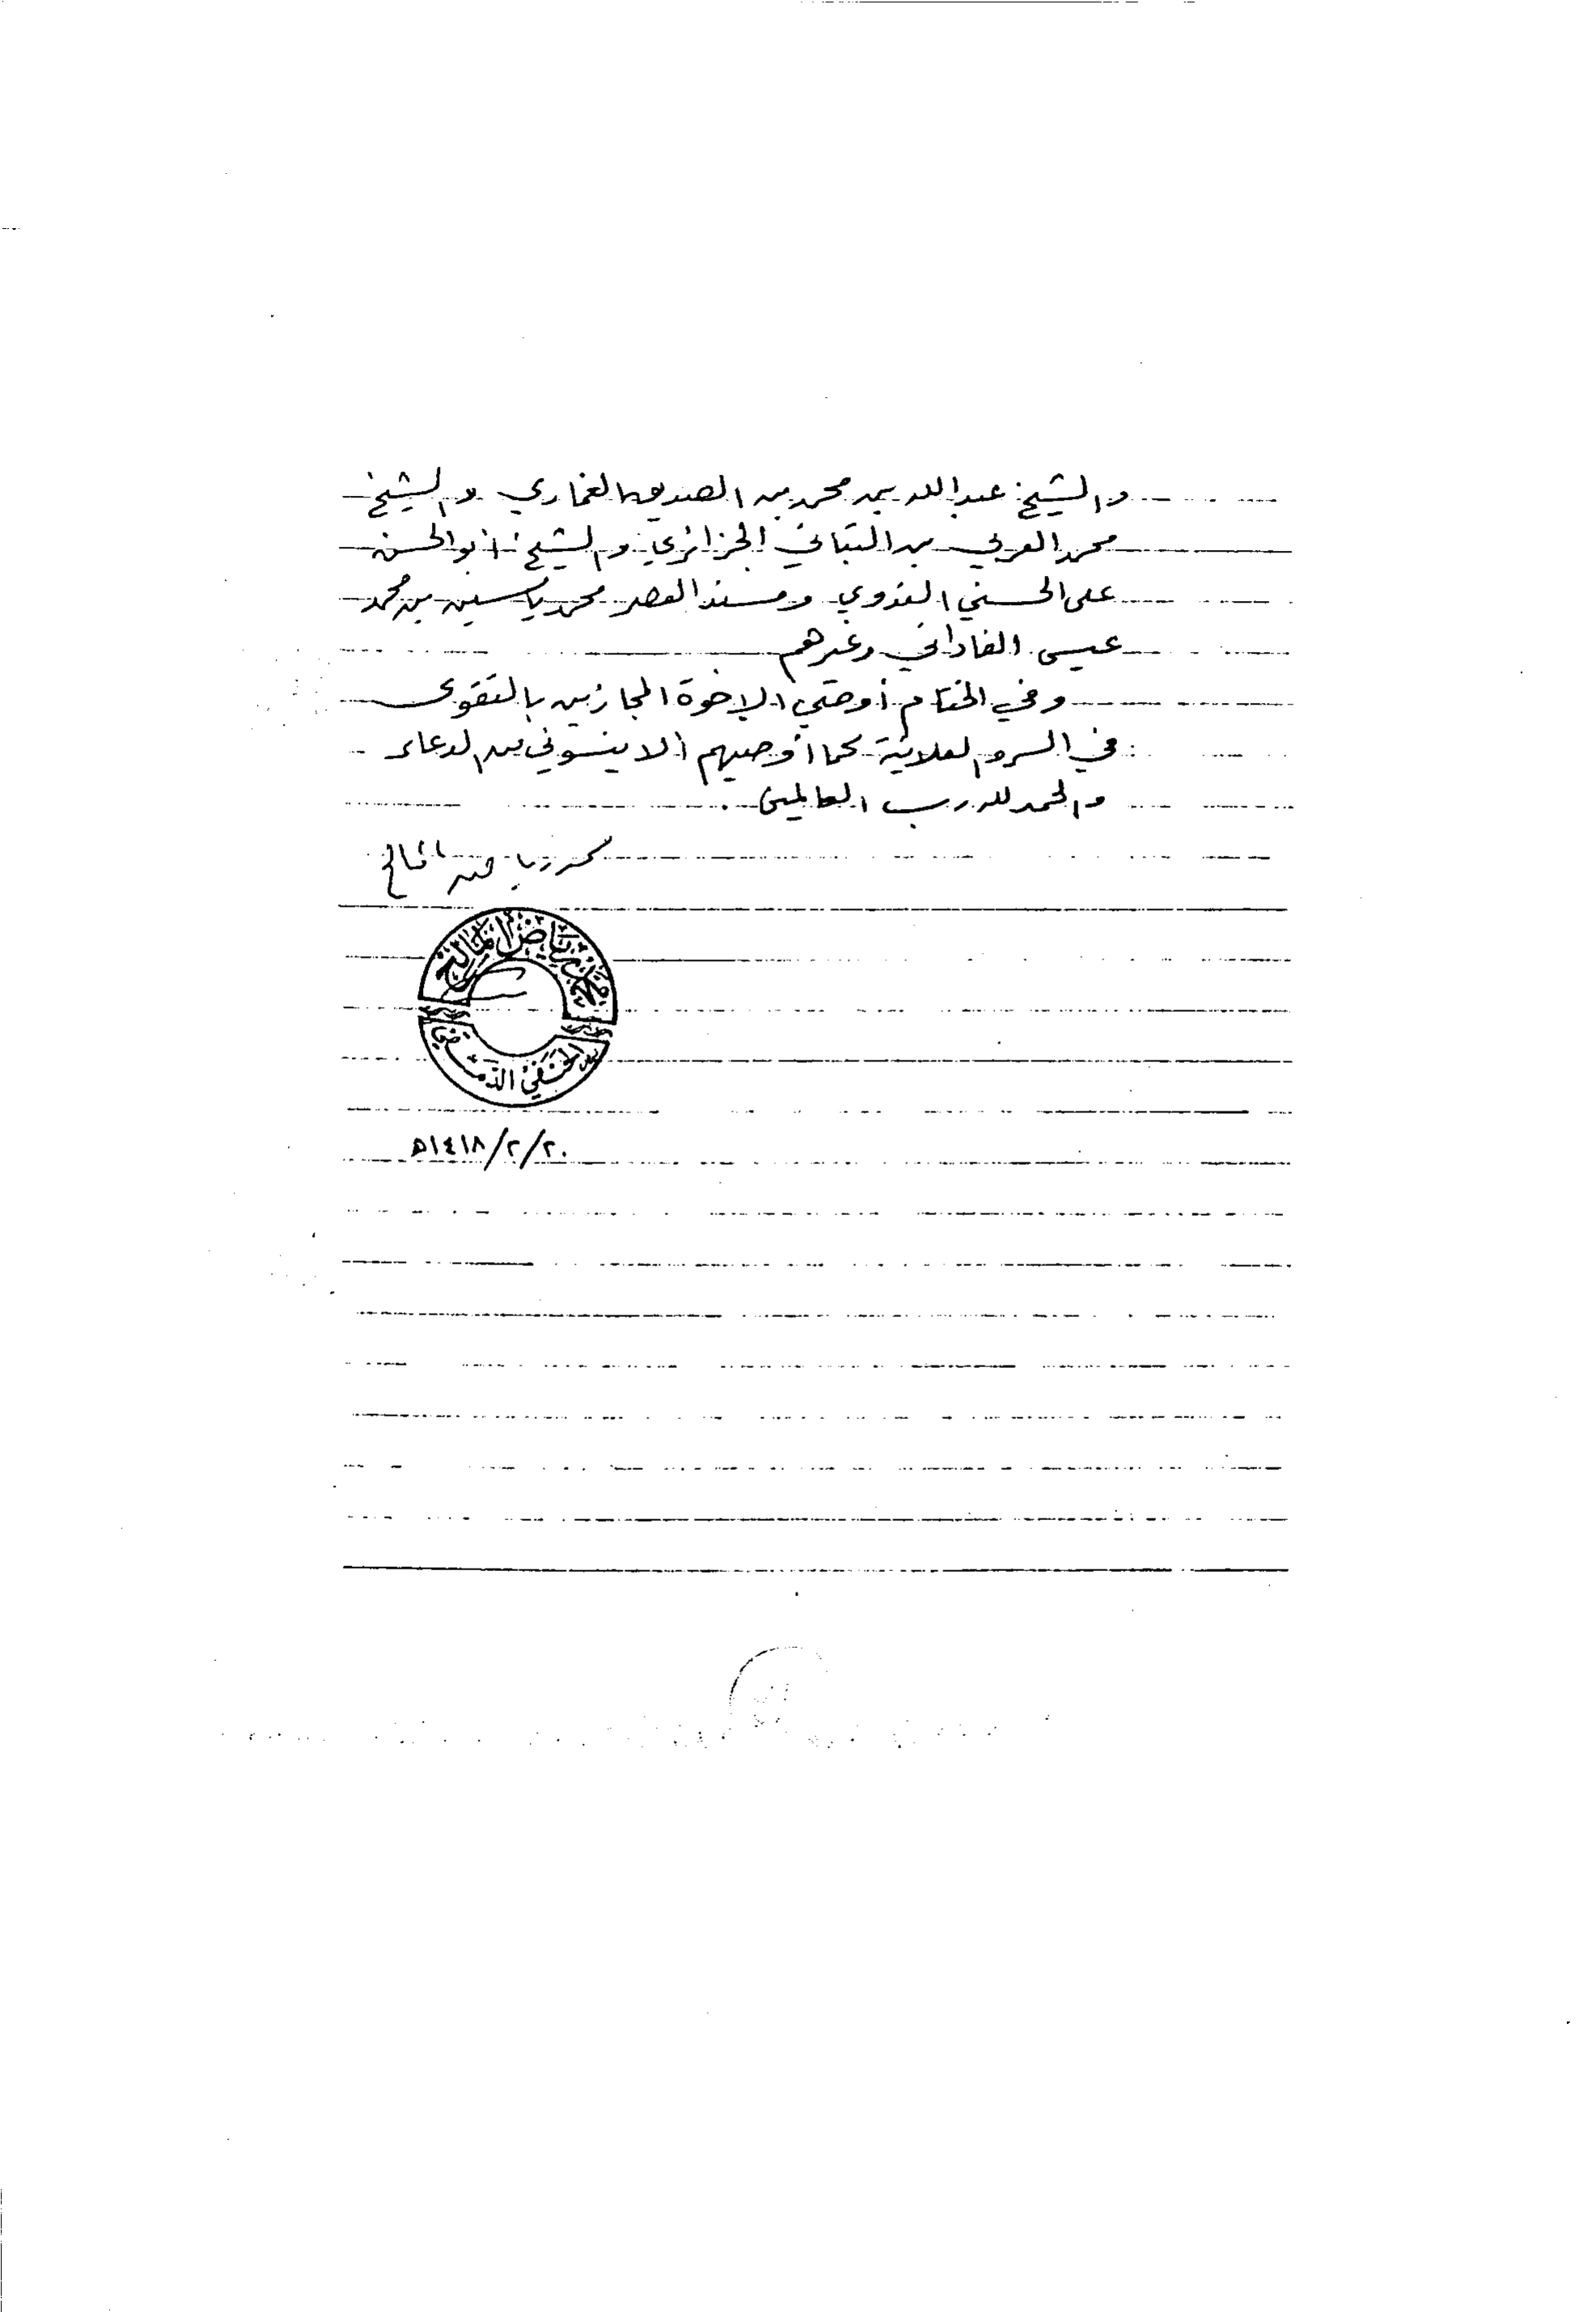 والشيخ عبدالله بن محمد بن الصديق الغماري والشيخ
محمد العربي بن التباني الجزائري والشيخ أبو الحسن
علي الحسني الندوي ومسند العصر محمد ياسين بن محمد
عيسى الفاداني وغيرهم
وفي الختام أوصي الإخوة المجازين بالتقوى
في السر والعلانية كما أوصيهم ألا ينسوني من الدعاء
والحمد لله رب العالمين .
محمد رياض المالح
محمد رياض المالح
الحنفي الدمشقي
٢٠/٢/١٤١٨ه